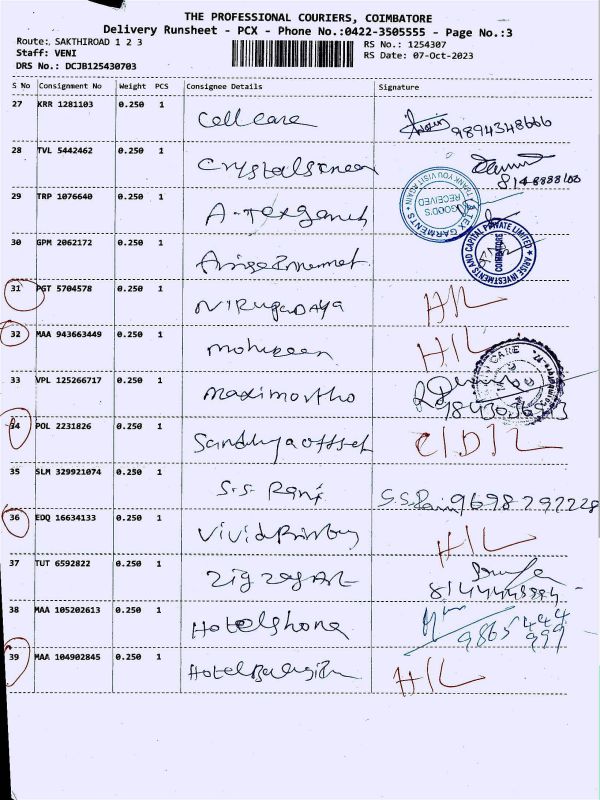 THE PROFESSIONAL COURIERS, COIMBATORE
Delivery Runsheet - PCX - Phone No.:0422-3505555 - Page No.:3
Route: SAKTHIROAD 1 2 3
RS No.: 1254307
Staff: VENI
RS Date: 07-Oct-2023
DRS No.: DCJB125430703
S No Consignment No Weight PCS Consignee Details Signature
27 KRR 1281103 0.250 1 Cell care 9894348666
28 TVL 5442462 0.250 1
29 TRP 1076640 0.250 1
GOOD'S RECEIVED THANK YOU VISIT AGAIN
30 GPM 2062172 0.250 1
ARISE INVESTMENTS AND CAPITAL PRIVATE LIMITED COIMBATORE
31 PGT 5704578 0.250 1 H/L
32 MAA 943663449 0.250 1 H/L
33 VPL 125266717 0.250 1 maximortho
34 POL 2231826 0.250 1 Sandhya offset C/D/L
35 SLM 329921074 0.250 1 S.S. Rani S.S Rani 9698292228
36 EDQ 16634133 0.250 1 H/L
37 TUT 6592822 0.250 1 zig zag Art
38 MAA 105202613 0.250 1 9865 444 999
39 MAA 104902845 0.250 1 H/L